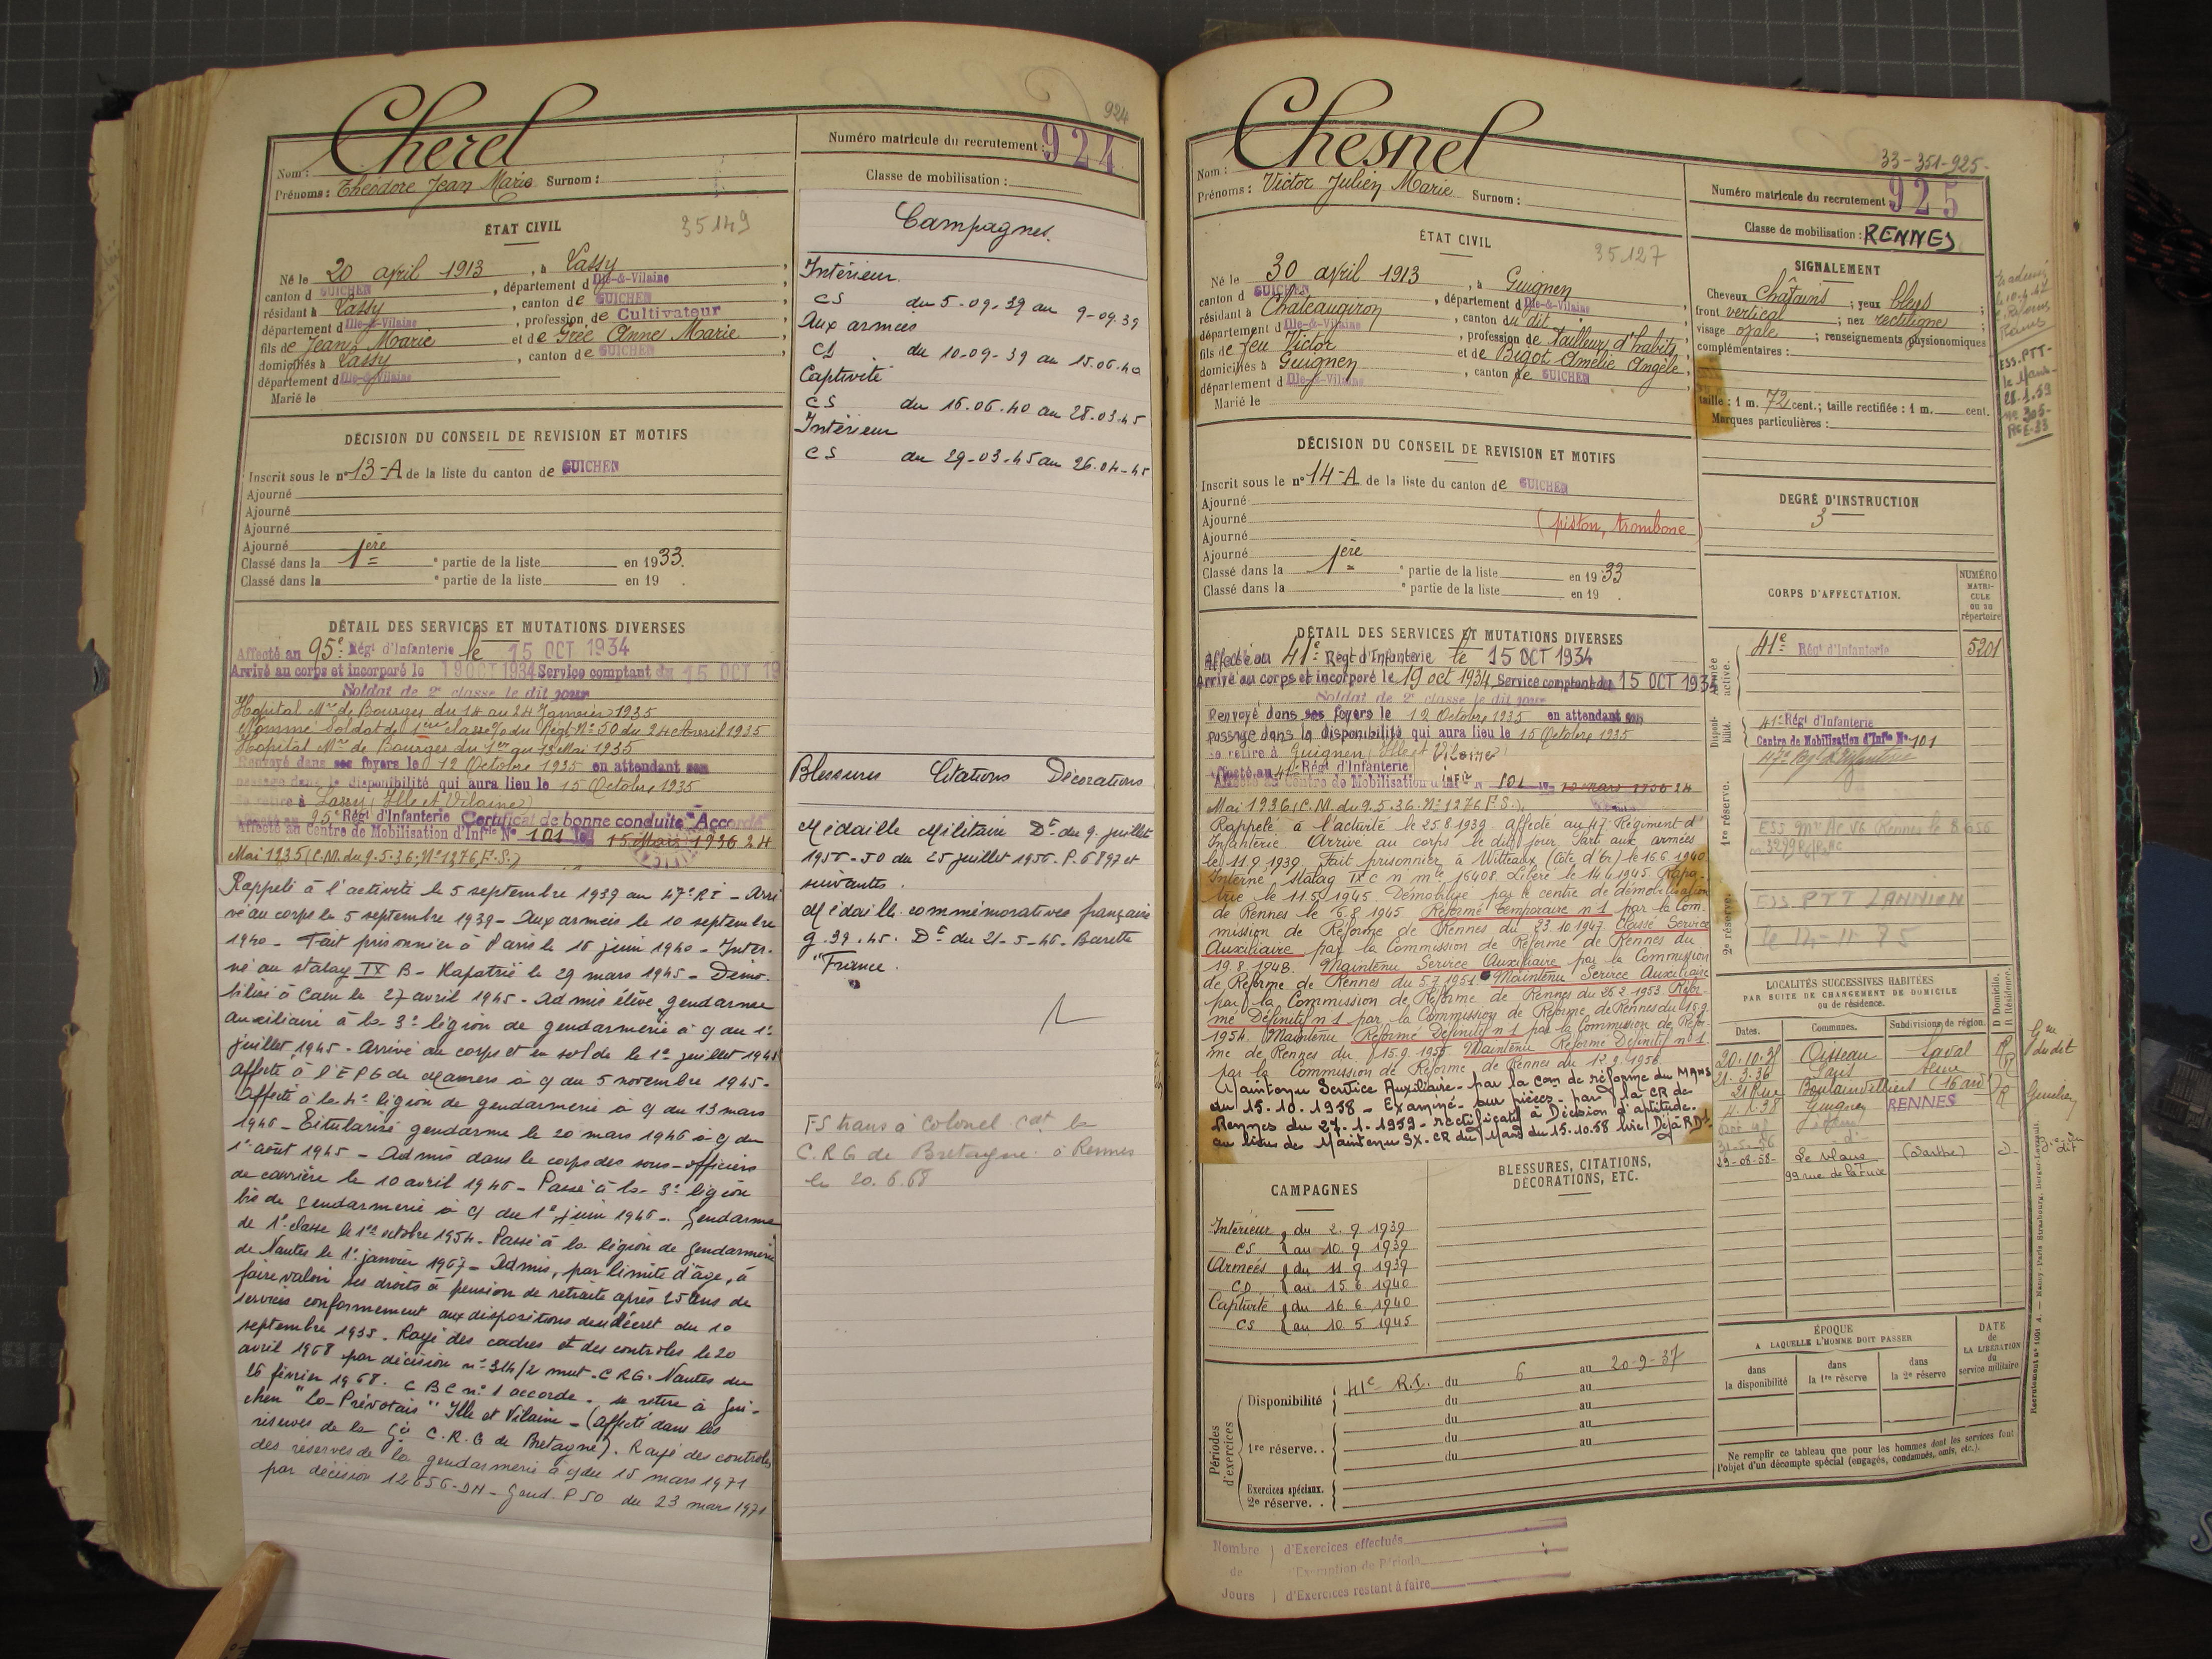 924
Cherel
Nom :
Prénoms : Théodore Jean Marie Surnom :
Numéro matricule du recrutement : 924
Classe de mobilisation :
ÉTAT CIVIL
35149
Né le 20 avril 1913, à Lassy
canton d GUICHEN, département d Ille-&-Vilaine
résidant à Lassy, canton de GUICHEN
département d Ille-&-Vilaine, profession de Cultivateur
fils de Jean Marie et de Grée Anne Marie
domiciliés à Lassy, canton de GUICHEN
département d Ille-&-Vilaine
Marié le
DÉCISION DU CONSEIL DE REVISION ET MOTIFS
Inscrit sous le n° 13-A de la liste du canton de GUICHEN
Ajourné
Ajourné
Ajourné
Ajourné
Classé dans la 1ère partie de la liste en 1933.
Classé dans la e partie de la liste en 19 .
DÉTAIL DES SERVICES ET MUTATIONS DIVERSES
Affecté au 95e Régt d'Infanterie le 15 OCT 1934
Arrivé au corps et incorporé le 19 OCT 1934 Service comptant du 15 OCT 19
Soldat de 2e classe le dit jour
Hopital Mre de Bourges du 14 au 24 Janvier 1935
Nommé Soldat de 1ère classe o/ du Régt N° 50 du 24 Avril 1935
Hopital Mre de Bourges du 1er au 13 Mai 1935
Renvoyé dans ses foyers le 12 Octobre 1935 en attendant son
passage dans la disponibilité qui aura lieu le 15 Octobre 1935
Se retire à Lassy (Ille et Vilaine)
Affecté au 95e Régt d'Infanterie Certificat de bonne conduite "Accordé"
Affecté au Centre de Mobilisation d'Infie N° 101 le 15 Mars 1936 24
Mai 1935 (C.M. du 9.5.36, N° 1276 F.S.)
Rappelé à l'activité le 5 septembre 1939 au 47e RI - Arri
vé au corps le 5 septembre 1939 - Aux armées le 10 septembre
1940 - Fait prisonnier à Paris le 16 juin 1940 - Inter-
né au stalag IX B - Rapatrié le 29 mars 1945 - Démo-
bilisé à Caen le 27 avril 1945 - Admis élève gendarme
auxiliaire à la 3e légion de gendarmerie à c/ du 1er
juillet 1945 - Arrivé au corps et en solde le 1er juillet 1945
affecté à l'EPG de Mamers à c/ du 5 novembre 1945 -
Affecté à la 4e légion de gendarmerie à c/ du 13 mars
1946 - Titularisé gendarme le 20 mars 1946 à c/ du
1er août 1945 - Admis dans le corps des sous-officiers
de carrière le 10 avril 1946 - Passé à la 3e légion
bis de gendarmerie à c/ du 1er juin 1946 - Gendarme
de 1e classe le 1er octobre 1954 - Passé à la légion de gendarmerie
de Nantes le 1er janvier 1967 - Admis, par limite d'âge, à
faire valoir ses droits à pension de retraite après 25 ans de
services conformément aux dispositions du décret du 10
septembre 1935. Rayé des cadres et des contrôles le 20
avril 1968 par décision n° 314/2 mut. C R G. Nantes du
26 février 1968. C B C n° 1 accordé - se retire à Gui-
chen "La Prévotais" Ille et Vilaine - (affecté dans les
réserves de la C.R.G de Bretagne). Rayé des contrôles
des réserves de la gendarmerie à c/ du 15 mars 1971
par décision 12656-DN-Gend. P SO du 23 mars 1971
Campagnes.
Intérieur
CS du 5-09-39 au 9-09-39
Aux armées
CD du 10-09-39 au 15-06-40
Captivité
CS du 16.06.40 au 28.03.45
Intérieur
CS du 29-03-45 au 26-04-45
Blessures Citations Décorations
Médaille Militaire Dt du 9 juillet
1956 - JO du 25 juillet 1956 - P. 6897 et
suivantes.
Médaille commémorative française
g. 39.45. Dt du 21-5-46 - Barette
"France.
FS trans à Colonel Cdt la
C.R.G de Bretagne à Rennes
le 20.6.68
33-351-925-
Chesnel
Nom :
Prénoms : Victor Julien Marie Surnom :
Numéro matricule du recrutement : 925
Classe de mobilisation : RENNES
ÉTAT CIVIL
35127
Né le 30 avril 1913, à Guignen
canton d GUICHEN, département d Ille-&-Vilaine
résidant à Chateaugiron, canton du dit
département d Ille-&-Vilaine, profession de tailleur d'habits
fils de feu Victor et de Bigot Amélie Angèle
domiciliés à Guignen, canton de GUICHEN
département d Ille-&-Vilaine
Marié le
SIGNALEMENT
Cheveux châtains ; yeux bleus ;
front vertical ; nez rectiligne ;
visage ovale ; renseignements physionomiques
complémentaires :
taille : 1 m. 72 cent.; taille rectifiée : 1 m. cent.
Marques particulières :
ESS. PTT-
le Mans-
28.1.59
DÉCISION DU CONSEIL DE REVISION ET MOTIFS
Inscrit sous le n° 14-A de la liste du canton de GUICHEN
Ajourné
Ajourné
Ajourné (piston, trombone)
Ajourné
Classé dans la 1ère partie de la liste en 1933
Classé dans la e partie de la liste en 19 .
DEGRÉ D'INSTRUCTION
3
DÉTAIL DES SERVICES ET MUTATIONS DIVERSES
Affecté au 41e Régt d'Infanterie le 15 OCT 1934
Arrivé au corps et incorporé le 19 oct 1934 Service comptant du 15 OCT 1934
Soldat de 2e classe le dit jour
Renvoyé dans ses foyers le 12 Octobre 1935 en attendant son
passage dans la disponibilité qui aura lieu le 15 Octobre 1935
se retire à Guignen (Ille et Vilaine)
Affecté au 41e Régt d'Infanterie
Affecté au Centre de Mobilisation d'Infie N° 101 le 15 Mars 1936 24
Mai 1936 (C.M. du 9.5.36. N° 1276 F.S.)
Rappelé à l'activité le 25.8.1939 affecté au 47e Régiment d'
Infanterie. Arrivé au corps le dit jour. Parti aux armées
le 11.9.1939. Fait prisonnier à Witteaux (Côte d'Or) le 16.6.1940
Interné stalag IX C n° mle 16408. Libéré le 14.4.1945. Rapa-
trié le 11.5.1945. Démobilisé par le centre de démobilisation
de Rennes le 6.8.1945. Réformé temporaire n°1 par la Com-
mission de Réforme de Rennes du 23.10.1947. Classé Service
Auxiliaire par la Commission de Réforme de Rennes du
19.8.1948. Maintenu Service Auxiliaire par la Commission
de Réforme de Rennes du 5.7.1951. Maintenu Service Auxiliaire
par la Commission de Réforme de Rennes du 26.2.1953. Réfor-
mé Définitif n°1 par la Commission de Réforme de Rennes du 15.9.
1954. Maintenu Réformé Définitif n°1 par la Commission de Réfor-
me de Rennes du 15.9.1955. Maintenu Réformé Définitif n°1
par la Commission de Réforme de Rennes du 12.9.1956.
Maintenu Service Auxiliaire par la com de réforme du MANS
du 15.10.1958 - Examiné sur pièces par la CR de
Rennes du 27.1.1959 - rectificatif à Décision d'aptitude.
au lieu de Maintenu SX-CR du Mans du 15.10.58 lire Déjà RD1
CORPS D'AFFECTATION.
NUMÉRO MATRI-CULE ou au répertoire
Armée active.
41e Régt d'Infanterie 5201
Disponibilité.
41e Régt d'Infanterie
Centre de Mobilisation d'Infie N° 101
1re réserve.
47e Régt d'Infanterie
2e réserve.
ESS PTT LANNION
LOCALITÉS SUCCESSIVES HABITÉES
PAR SUITE DE CHANGEMENT DE DOMICILE
ou de résidence.
Dates. Communes. Subdivisions de région. D Domicile. R Résidence.
20.10.35 Oisseau Laval R
21.3.36 Paris Seine R
21 Rue Boulainvilliers (16 ard)
4.1.38 Guignen RENNES R
29-08-58- Le Mans (Sarthe) D-
99 rue de la Fuie
CAMPAGNES
Intérieur du 2.9.1939
CS au 10.9.1939
Armées du 11.9.1939
CD au 15.6.1940
Captivité du 16.6.1940
CS au 10.5.1945
BLESSURES, CITATIONS,
DÉCORATIONS, ETC.
Périodes d'exercices
Disponibilité 41e R.I. du 6 au 20-9-37
du au
du au
1re réserve. . du au
du au
Exercices spéciaux.
2e réserve. .
ÉPOQUE
A LAQUELLE L'HOMME DOIT PASSER
dans la disponibilité
dans la 1re réserve
dans la 2e réserve
DATE de LA LIBÉRATION du service militaire
Ne remplir ce tableau que pour les hommes dont les services font
l'objet d'un décompte spécial (engagés, condamnés, omis, etc.).
Nombre de Jours
d'Exercices effectués
d'Exemption de Période
d'Exercices restant à faire